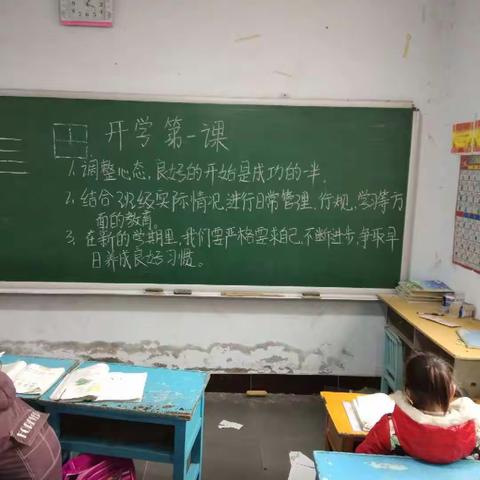 开学第一课
1. 调整心态,良好的开始是成功的一半。
2. 结合班级实际情况,进行日常管理、行规、学习等方
面的教育。
3. 在新的学期里,我们要严格要求自己,不断进步,争取早
日养成良好习惯。